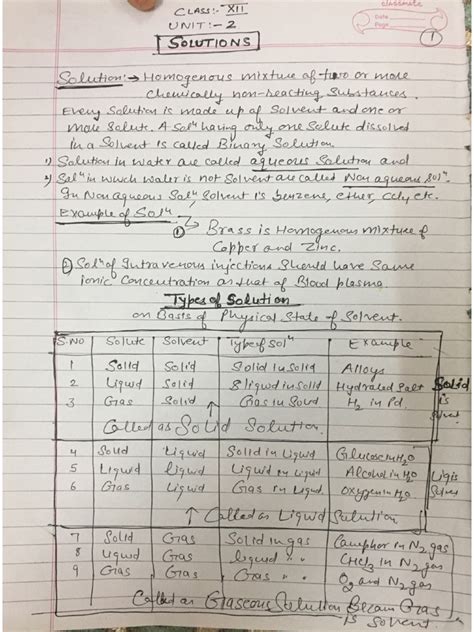 classmate
Date
Page
1
CLASS:- XII
UNIT:- 2
SOLUTIONS
Solution:→ Homogenous mixture of two or more
chemically non-reacting Substances.
Every Solution is made up of Solvent and one or
more Solute. A Solⁿ having only one Solute dissolved
in a Solvent is called Binary Solution.
1) Solution in water are called aqueous Solution and
2) Solⁿ in which water is not Solvent are called Non aqueous Solⁿ.
In Non aqueous Solⁿ Solvent is benzene, ether, CCl4 etc.
Example of Solⁿ
① Brass is Homogenous mixture of
Copper and Zinc.
② Solⁿ of Intravenous injections Should have Same
ionic Concentration as that of Blood plasma.
Types of Solution
on Basis of Physical State of Solvent.
S.NO Solute Solvent Type of Solⁿ Example
1 Solid Solid Solid in Solid Alloys
2 Liquid Solid liquid in Solid Hydrated Salt
3 Gas Solid Gas in Solid H2 in Pd.
Solid is Solvent
Called as Solid Solution.
4 Solid Liquid Solid in Liquid Glucose in H2O
5 Liquid Liquid Liquid in Liquid Alcohol in H2O
6 Gas Liquid Gas in Liquid Oxygen in H2O
Called as Liquid Solution
7 Solid Gas Solid in gas Camphor in N2 gas
8 Liquid Gas liquid " " CHCl3 in N2 gas
9 Gas Gas Gas " " O2 and N2 gas
Called as Gaseous Solution Becam Gas
is Solvent.